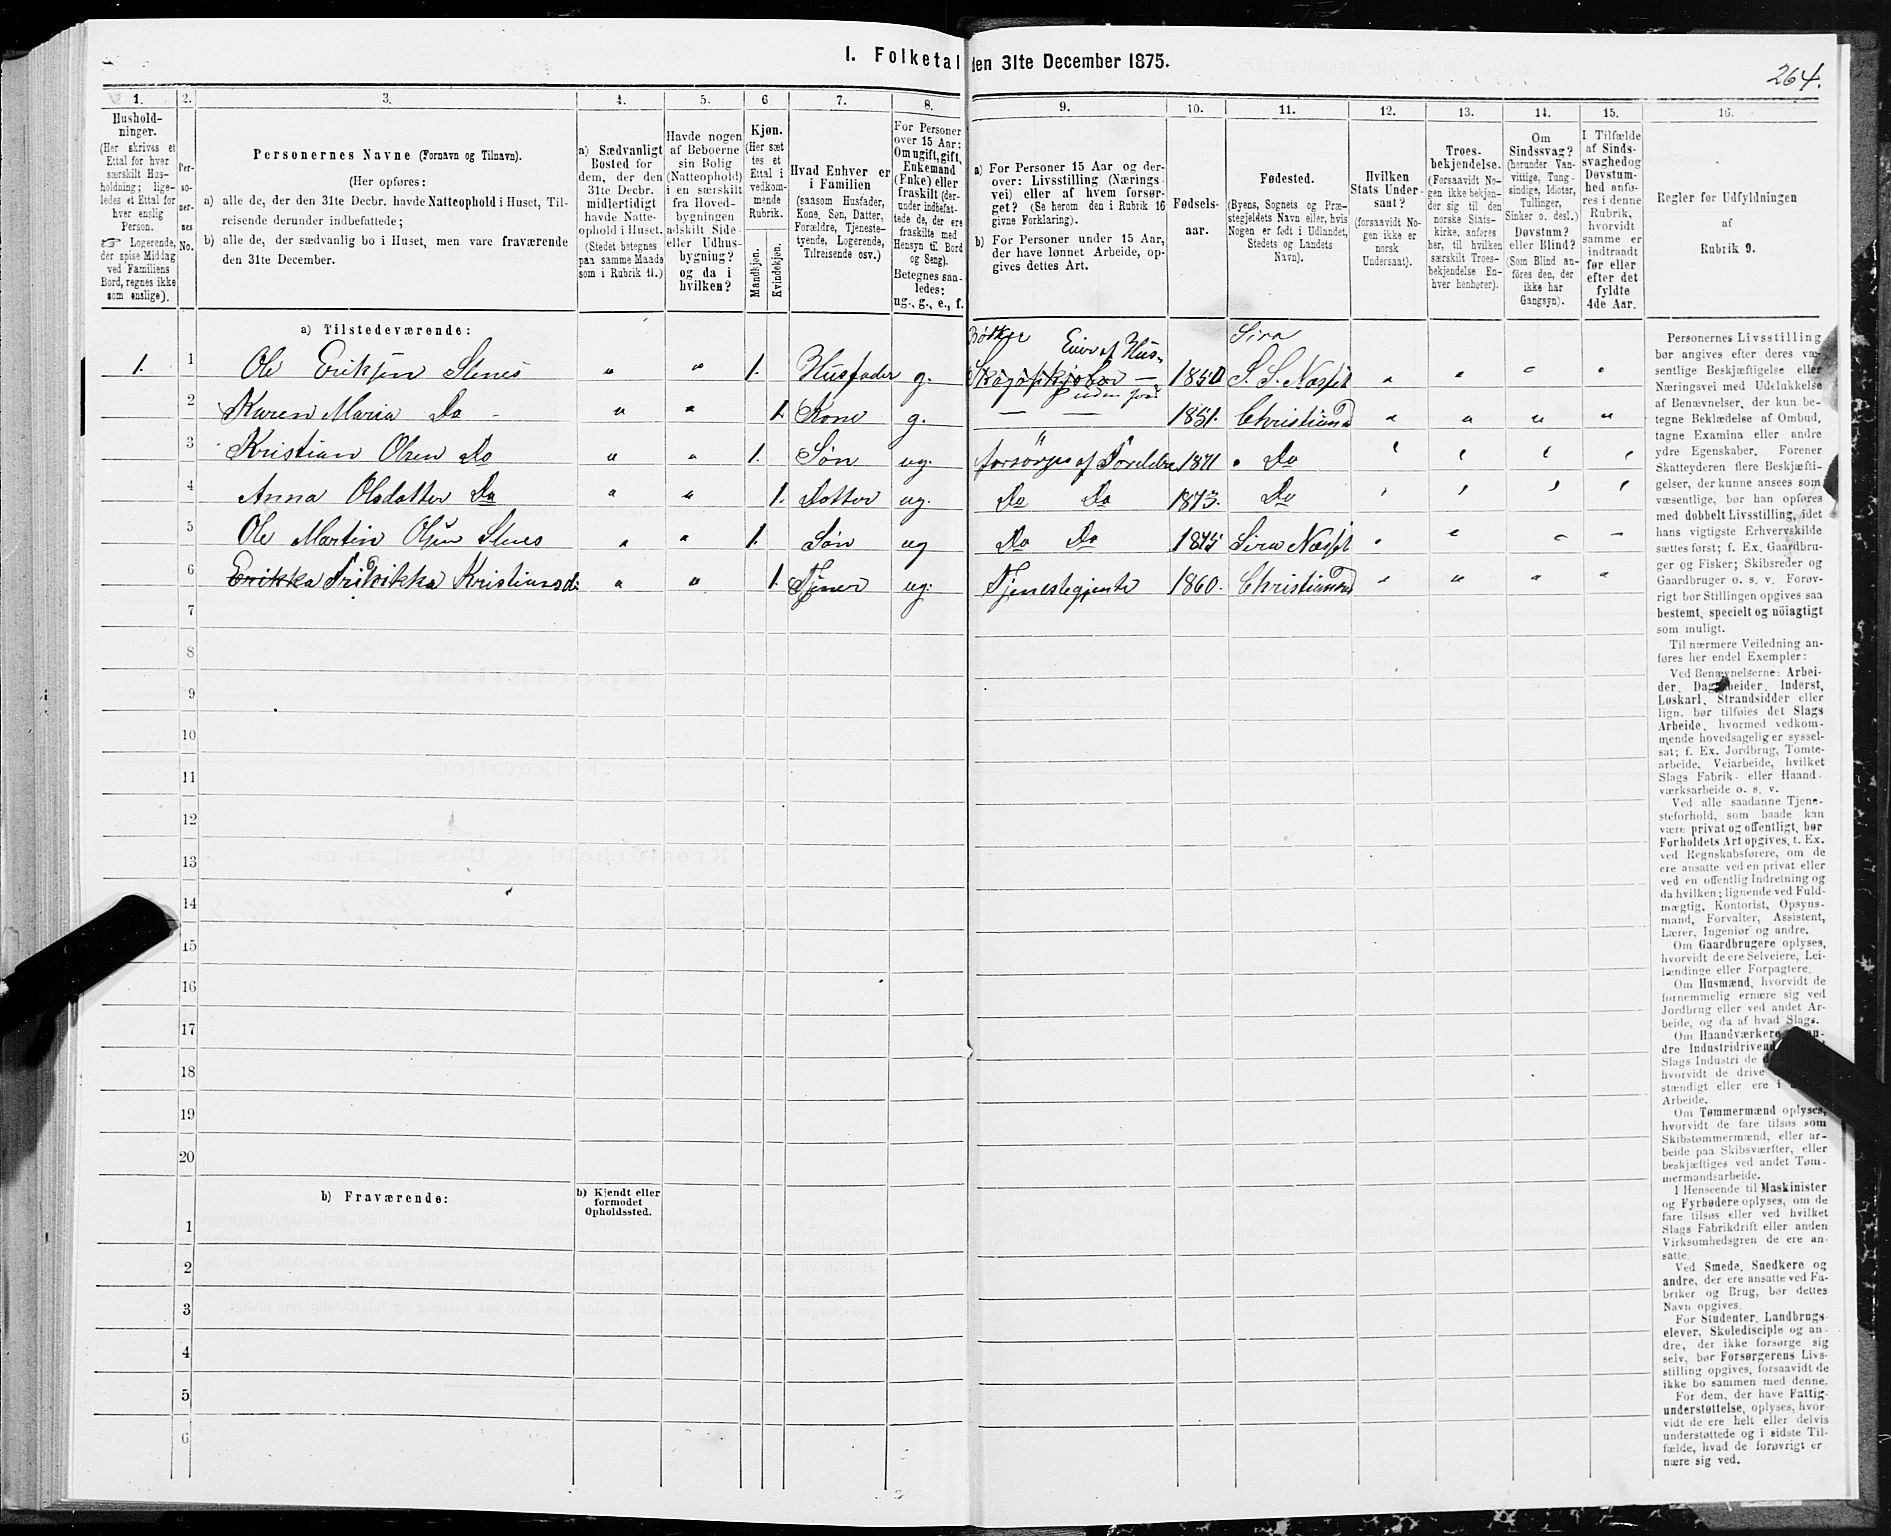 1. Folketal den 31te December 1875.
264.
1.
Hushold-
ninger.
(Her skrives et
Ettal for hver
særskilt Hus-
holdning; lige-
ledes et Ettal for
hver enslig
Person.
☞ Logerende,
der spise Middag
ved Familiens
Bord, regnes ikke
som enslige).
2.
Per-
so-
ner-
nes
No.
3.
Personernes Navne (Fornavn og Tilnavn).
(Her opføres:
a) alle de, der den 31te Decbr. havde Natteophold i Huset, Til-
reisende derunder indbefattede;
b) alle de, der sædvanlig bo i Huset, men vare fraværende
den 31te December.
4.
a) Sædvanligt
Bosted for
dem, der den
31te Decbr.
midlertidigt
havde Natte-
ophold i Huset.
(Stedet betegnes
paa samme Maade
som i Rubrik 11.)
5.
Havde nogen
af Beboerne
sin Bolig
(Natteophold)
i en særskilt
fra Hoved-
bygningen
adskilt Side-
eller Udhus-
bygning?
og da i
hvilken?
6.
Kjøn.
(Her sæt
tes et
Ettal i
vedkom-
mende
Rubrik.
Mandkjøn.
Kvindekjøn.
7.
Hvad Enhver er
i Familien
(saasom Husfader,
Kone, Søn, Datter,
Forældre, Tjeneste-
tyende, Logerende,
Tilreisende osv.)
8.
For Personer
over 15 Aar:
Om ugift, gift,
Enkemand
(Enke) eller
fraskilt (der-
under indbefat-
tede de, der ere
fraskilte med
Hensyn til Bord
og Seng).
Betegnes saa-
ledes:
ug., g., e., f.
9.
a) For Personer 15 Aar og der-
over: Livsstilling (Nærings
vei) eller af hvem forsør-
get? (Se herom den i Rubrik 16
givne Forklaring).
b) For Personer under 15 Aar,
der have lønnet Arbeide, op-
gives dettes Art.
10.
Fødsels-
aar.
11.
Fødested.
(Byens, Sognets og Præ-
stegjeldets Navn eller, hvis
Nogen er født i Udlandet,
Stedets og Landets
Navn).
12.
Hvilken
Stats Under-
saat?
(forsaavidt No-
gen ikke er
norsk
Undersaat).
13.
Troes-
bekjendelse.
(Forsaavidt No-
gen ikke bekjen-
der sig til den
norske Stats-
kirke, anføres
her, til hvilken
særskilt Troes-
bekjendelse En-
hver henhører).
14.
Om
Sindssvag?
(herunder Van-
vittige, Tung-
sindige, Idioter,
Tullinger,
Sinker o. desl.)
Døvstum?
eller Blind?
(Som Blind an-
føres den, der
ikke har
Gangsyn).
15.
I Tilfælde
af Sinds-
svaghed og
Døvstum-
hed anfø-
res i denne
Rubrik,
hvorvidt
samme er
indtraadt
før eller
efter det
fyldte
4de Aar.
16.
Regler for Udfyldningen
af
Rubrik 9.
a) Tilstedeværende:
1. 1 Ole Eriksen Stenes " " 1. Husfader g. Bødker Eier af Hus uden Jord Skogopkjøber 1850 Sira S. S. Næsset " " " "
2 Karen Maria Do " " 1. Kone g. — — 1851. Christiansd " " " "
3 Kristian Olsen Do " " 1. Søn ug. forsørges af Foreldre 1871 Do
4 Anna Olsdatter Do " " 1. Datter ug. Do Do 1873. Do
5 Ole Martin Olsen Stenes " " 1. Søn ug Do Do 1875 Sira Næsset
6 Erikka Frikikka Kristiansd: " " 1. Tjener ug: Tjenestegjente 1860. Christiansd " " " "
7
8
9
10
11
12
13
14
15
16
17
18
19
20
b) Fraværende:
b) Kjendt eller
formodet
Opholdssted.
1
2
3
4
5
6
Personernes Livsstilling
bør angives efter deres væ-
sentlige Beskjæftigelse eller
Næringsvei med Udelukkelse
af Benævnelser, der kun be-
tegne Beklædelse af Ombud,
tagne Examina eller andre
ydre Egenskaber. Forener
Skatteyderen flere Beskjæfti-
gelser, der kunne ansees som
væsentlige, bør han opføres
med dobbelt Livsstilling, idet
hans vigtigste Erhvervskilde
sættes først; f. Ex. Gaardbru-
ger og Fisker; Skibsreder og
Gaardbruger o. s. v. Forøv-
rigt bør Stillingen opgives saa
bestemt, specielt og nöiagtigt
som muligt.
Til nærmere Veiledning an-
føres her endel Exempler:
Ved Benævnelserne: Arbei-
der, Dagarbeider, Inderst,
Løskarl, Strandsidder eller
lign. bør tilføies det Slags
Arbeide, hvormed vedkom-
mende hovedsagelig er syssel-
sat; f. Ex. Jordbrug, Tomte-
arbeide, Veiarbeide, hvilket
Slags Fabrik- eller Haand-
værksarbeide o. s. v.
Ved alle saadanne Tjene-
steforhold, som baade kan
være privat og offentligt, bør
Forholdets Art opgives, f. Ex.
ved Regnskabsførere, om de
ere ansatte ved en privat eller
ved en offentlig Indretning og
da hvilken; lignende ved Fuld-
mægtig, Kontorist, Opsyns-
mand, Forvalter, Assistent,
Lærer, Ingeniør og andre.
Om Gaardbrugere oplyses,
hvorvidt de ere Selveiere, Lei-
lændinge eller Forpagtere.
Om Husmænd, hvorvidt de
fornemmelig ernære sig ved
Jordbrug eller ved andet Ar-
beide, og da af hvad Slags.
Om Haandværkere
dre Industridrivend
Slags Industri de
hvorvidt de drive
stændigt eller ere i
Arbeide.
Om Tømmermænd oplyses,
hvorvidt de fare tilsøs som
Skibstømmermænd, eller ar-
beide paa Skibsværfter, eller
beskjæftiges ved andet Tøm-
mermandsarbeide.
I Henseende til Maskinister
og Fyrbødere oplyses, om de
fare tilsøs eller ved hvilket
Slags Fabrikdrift eller anden
Virksomhedsgren de ere an-
satte.
Ved Smede, Snedkere og
andre, der ere ansatte ved Fa-
briker og Brug, bør dettes
Navn opgives.
For Studenter, Landbrugs-
elever, Skoledisciple og an-
dre, der ikke forsørge sig
selv, bør Forsørgerens Livs-
stilling opgives, forsaavidt de
ikke bo sammen med denne.
For dem, der have Fattig-
understøttelse, oplyses, hvor-
vidt de ere helt eller delvis
understøttede og i sidste Til-
fælde, hvad de forøvrigt er-
nære sig ved.